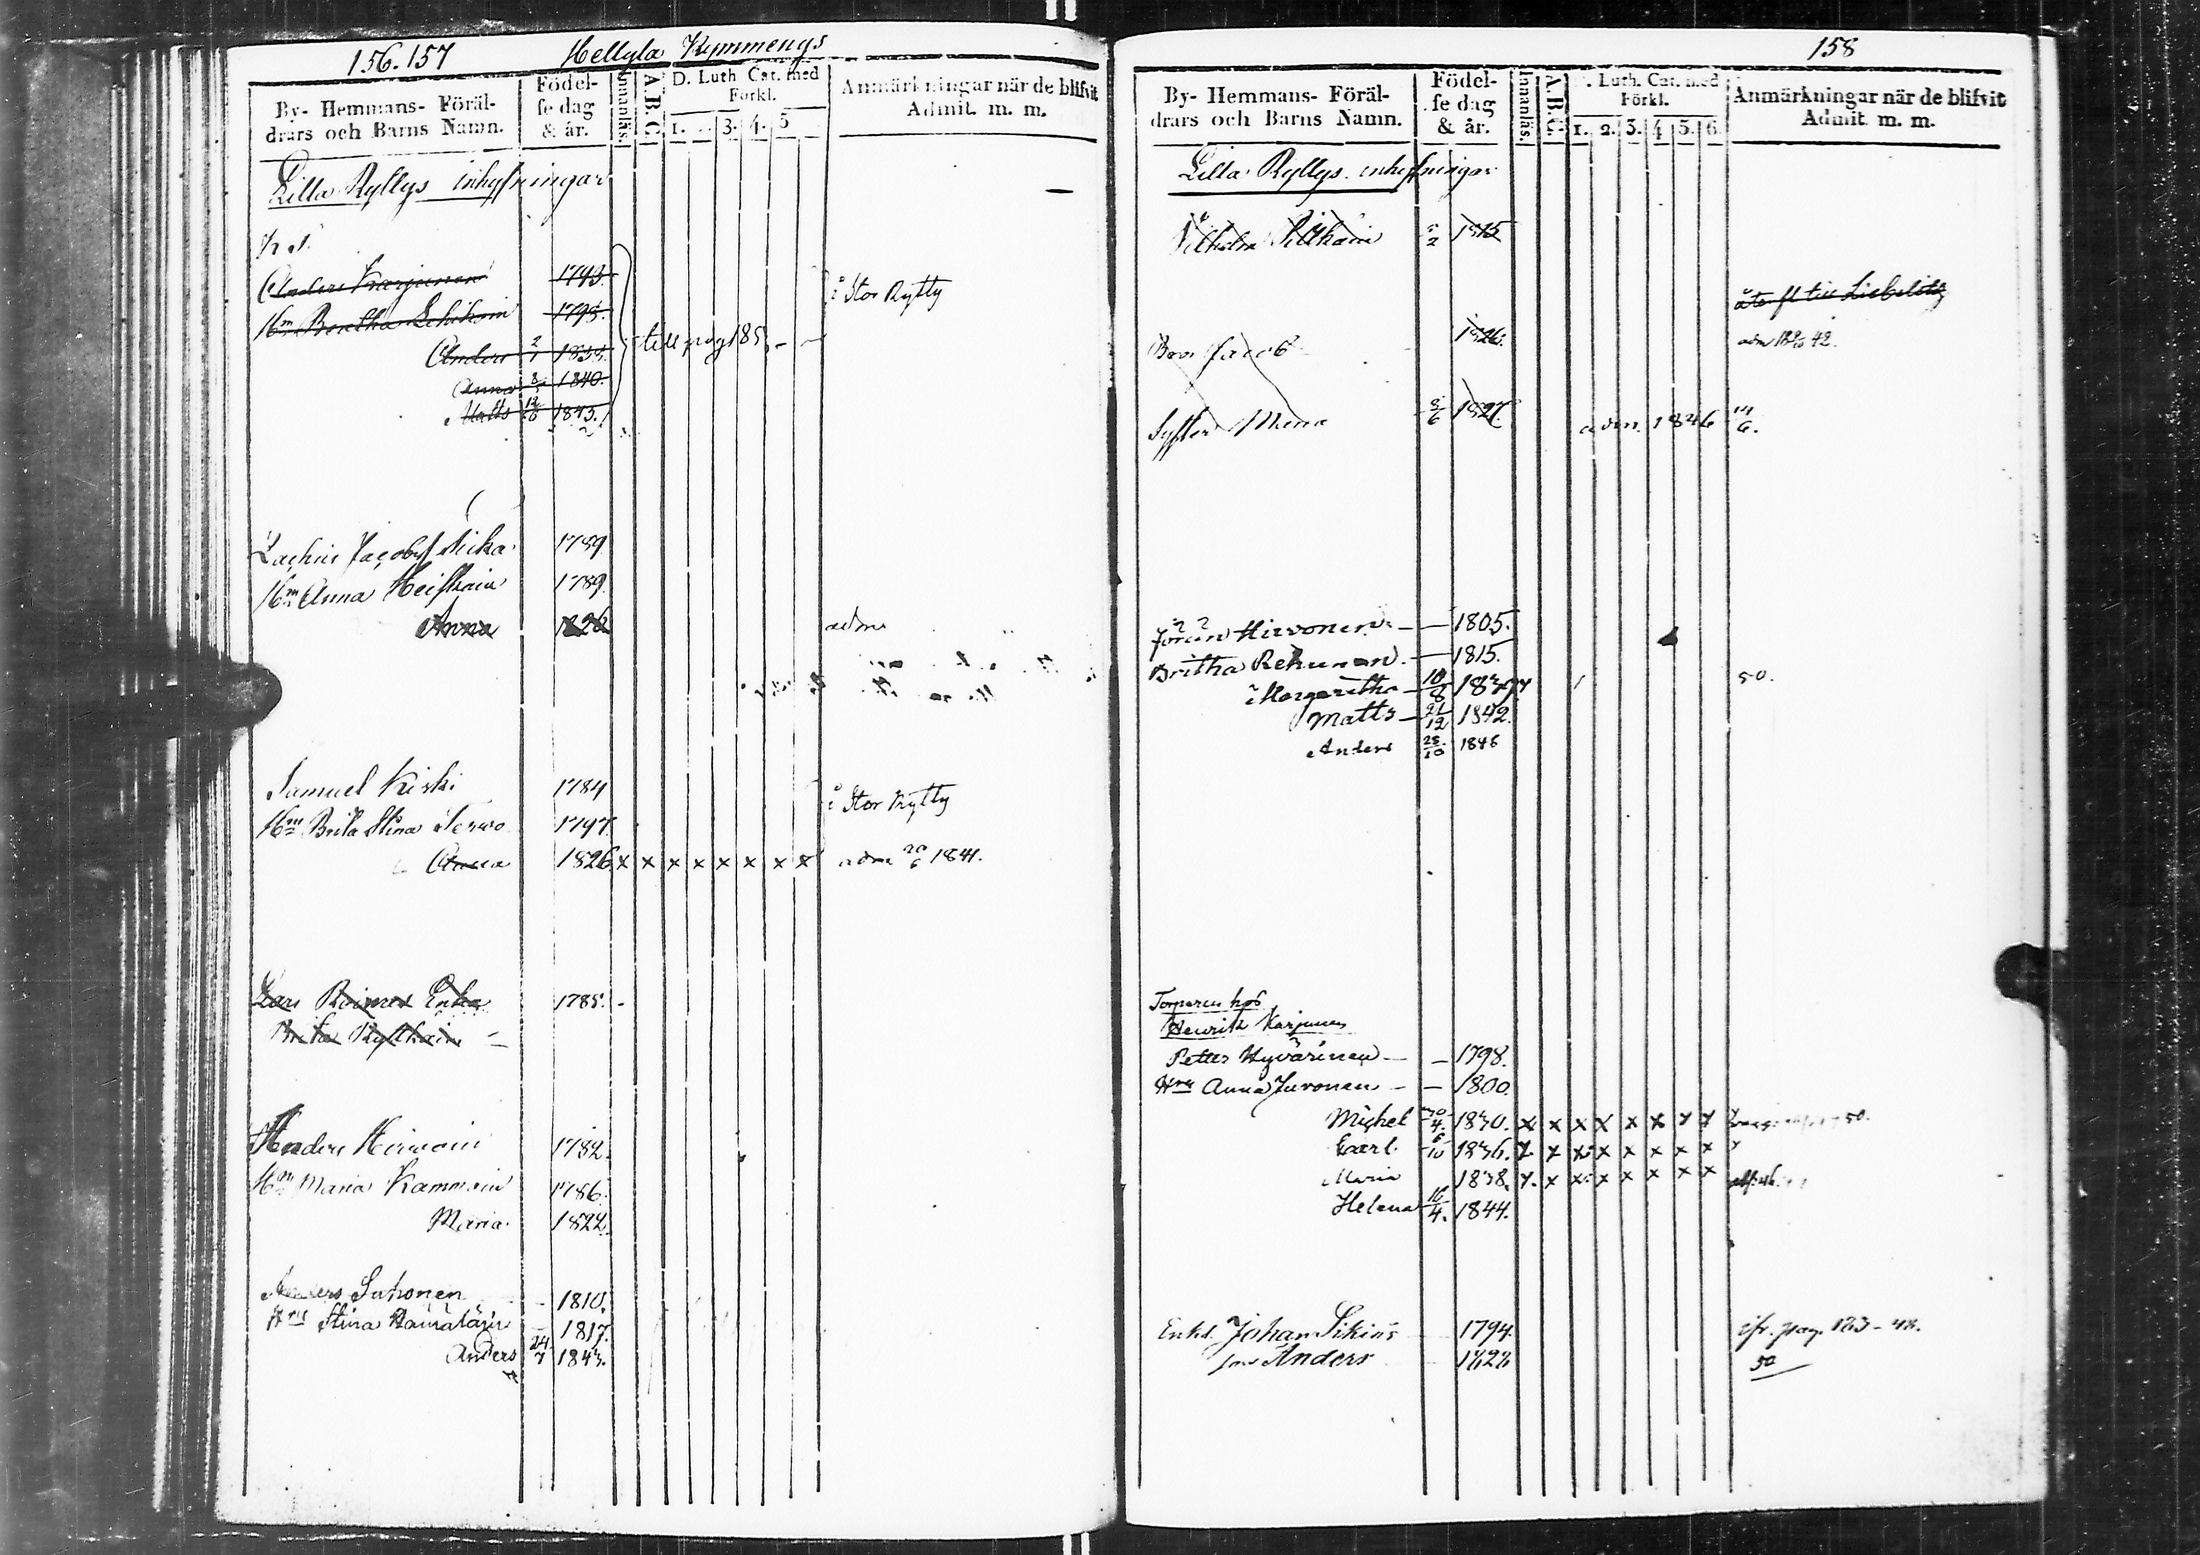 156.157 Hellyla Kymmenys
By- Hemmans- Föräl-
drars och Barns Namn.
Födel-
se dag
& år.
Innanläs.
A.B.C.
D. Luth Cat. med
Förkl.
1. 3. 4. 5
Anmärkningar när de blifvit
Admit. m. m.
Lilla Ryllys inhysningar
Anders Karjunen 1793.
i Stor Rytty
Hn Bertha 1795.
till pag 185
Anders 2/1
Anna 8 1840.
Matts 1843.
Jacobs 1789
Hn Anna Heiskain 1789
Anna 1826
adm
Samuel Kiski 1784
i Stor Rytty
Hn Brita Stina Terwo 1797.
Anna 1826 x x x x x x x x adm 20/6 1841.
Lars Roimes Enka 1785.
Brita
Anders Hirvoin 1782.
Hn Maria Kammoin 1786.
Maria 1822
Anders Suhonen 1810.
Hru Stina 1817.
Anders 24/7 1843.
158
By- Hemmans- Föräl-
drars och Barns Namn.
Födel-
se dag
& år.
Innanläs.
A.B.C.
. Luth. Cat. med
Förkl.
1. 2. 3. 4 5. 6
Anmärkningar när de blifvit
Admit. m. m.
Lilla Ryllys inhysningar
Vilhelm Pitkäin 1815
till Liebelitz
Bror Jacob 1826.
adm 42.
Syster Mena 8/6 1827.
adm. 1846 14/6.
Jöran Hirvonen — — 1805.
Britha Rehunen. — 1815.
Margaretha — 10/8
50.
Matts — 21/12 1842.
Anders 28/10 1846
Torparen hos
Henrik Karjunen
Petter Hyvärinen — — 1798.
Hru Anna Juvonen — — 1800.
Michel 30/4. 1830. x x x x x x x x 50.
Carl 6/10 1836. x x x x x x x x
Maria 1838. x x x x x x x x
Helena 16/4. 1844.
Enkl. Johan Sikiäs 1794.
cfr. pag. 183 - 48.
son Anders 1828
50